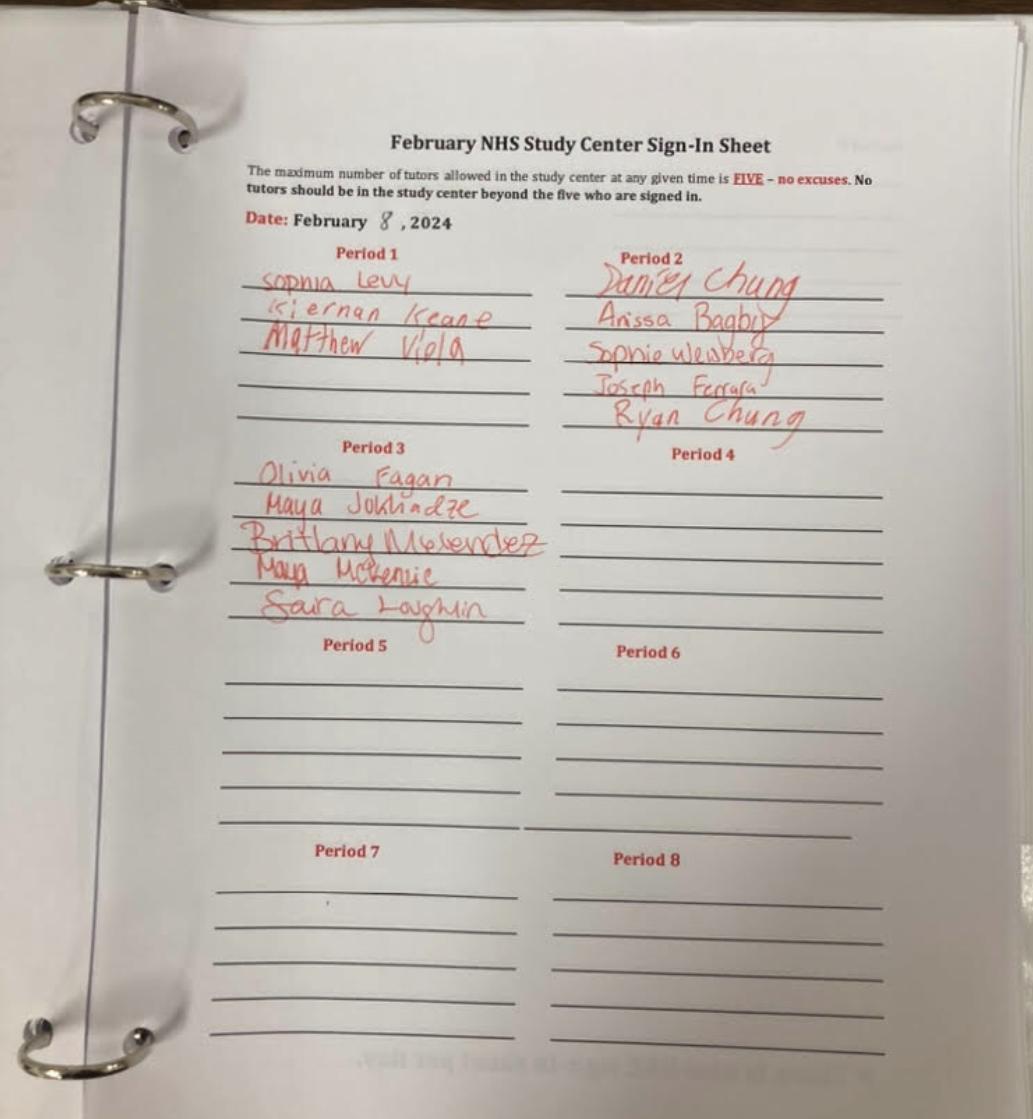 February NHS Study Center Sign-In Sheet
The maximum number of tutors allowed in the study center at any given time is FIVE – no excuses. No
tutors should be in the study center beyond the five who are signed in.
Date: February 8, 2024
Period 1
Sophia Levy
Kiernan Keane
Matthew Viola
Period 2
Daniel Chung
Arissa Bagby
Sophie
Joseph Ferrara
Ryan Chung
Period 3
Olivia Fagan
Maya Jokhadze
Brittany Melendez
Maya McKenzie
Saira Loughlin
Period 4
Period 5
Period 6
Period 7
Period 8